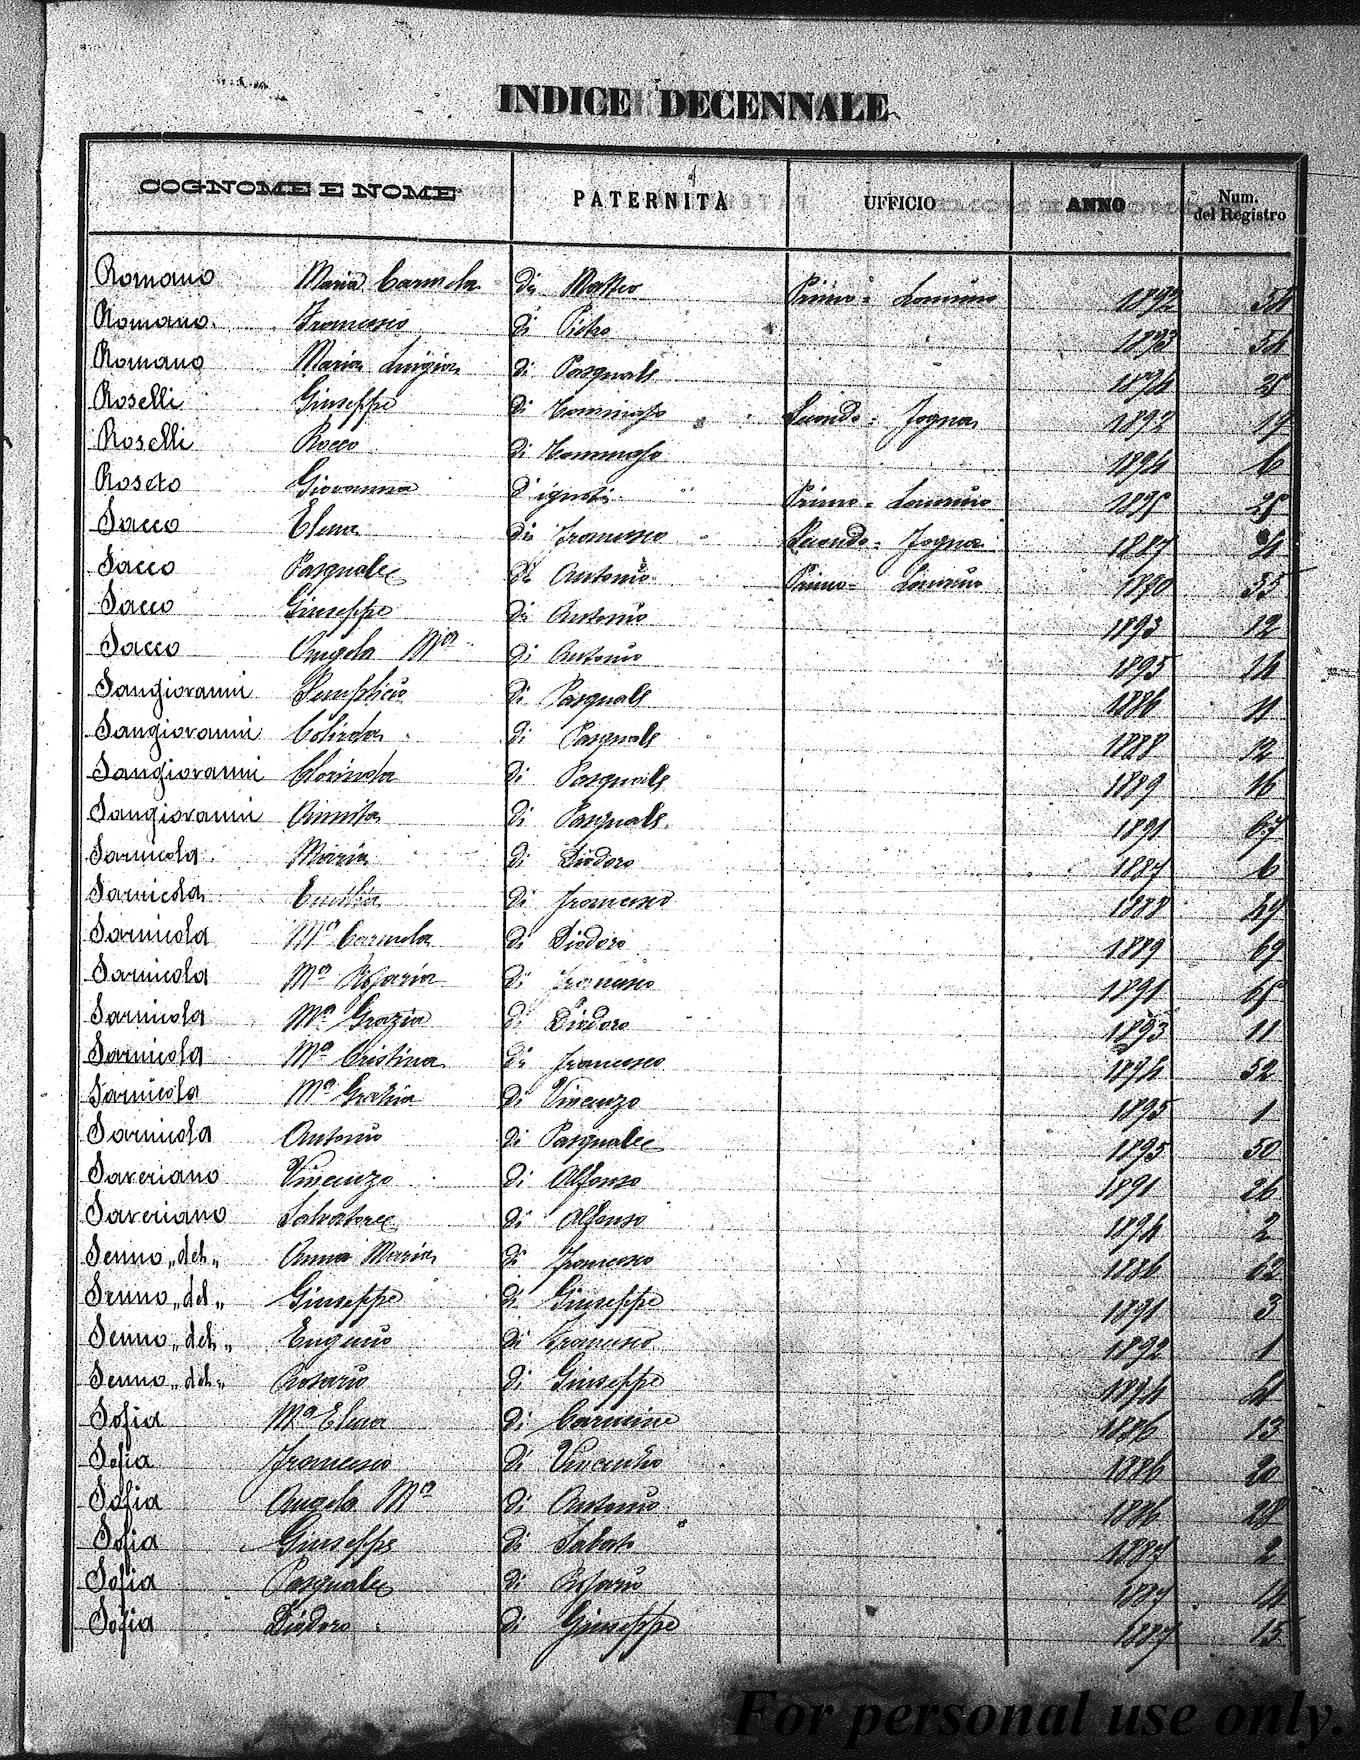 INDICE DECENNALE
COGNOME E NOME PATERNITÀ UFFICIO ANNO Num. del Registro
Romano Maria Carmela di Matteo Primo = 1892 54
Romano Francesco di Pietro 1893 54
Romano Maria Luigia di Pasquale 1894 25
Roselli Giuseppe di Tommaso Secondo = Jogna 1892 19
Roselli Rocco di Tommaso 1894 6
Roseto Giovanna d'ignoti Primo = 1895 25
Sacco Elena di Francesco Secondo = Jogna 1887 4
Sacco Pasquale di Antonio Primo = 1890 35
Sacco Giuseppe di Antonio 1893 12
Sacco Angela Mª di Antonio 1895 14
Sangiovanni Semplicio di Pasquale 1886 11
Sangiovanni Colinda di Pasquale 1888 12
Sangiovanni Clorinda di Pasquale 1889 16
Sangiovanni Annita di Pasquale 1891 67
Sarnicola Maria di Diodoro 1887 6
Sarnicola Emilia di Francesco 1888 49
Sarnicola Mª Carmela di Diodoro 1889 69
Sarnicola Mª Rosaria di Francesco 1891 65
Sarnicola Mª Grazia di Diodoro 1893 11
Sarnicola Mª Cristina di Francesco 1894 52
Sarnicola Mª Grazia di Vincenzo 1895 1
Sarnicola Antonio di Pasquale 1895 50
Saveriano Vincenzo di Alfonso 1891 26
Saveriano Salvatore di Alfonso 1894 2
Senno „del„ Anna Maria di Francesco 1886 62
Senno „del„ Giuseppe di Giuseppe 1891 3
Senno „del„ Eugenio di Francesco 1892 1
Senno „del„ Rosario di Giuseppe 1894 41
Sofia Mª Elena di Carmine 1886 13
Sofia Francesco di Vincenzo 1886 20
Sofia Angela Mª di Antonio 1886 28
Sofia Giuseppe di Sabato 1887 2
Sofia Pasquale di Rosario 1887 14
Sofia Diodoro di Giuseppe 1887 15
For personal use only.